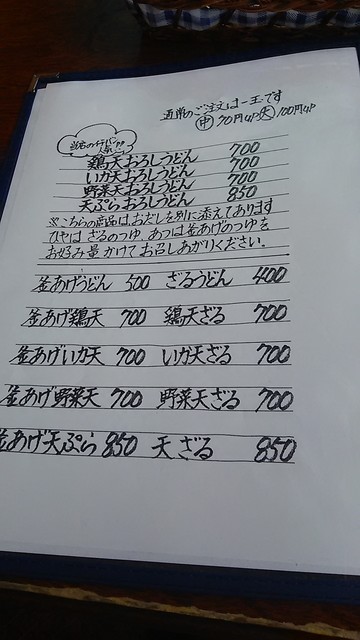 通常のご注文は一玉です
中 70円UP 大 100円UP
人気!!
鶏天おろしうどん 700
いか天おろしうどん 700
野菜天おろしうどん 700
天ぷらおろしうどん 850
※こちらの商品は、おだしを別に添えてあります
ひやはざるのつゆ、あつは釜あげのつゆを
お好み量かけてお召しあがりください。
釜あげうどん 500 ざるうどん 400
釜あげ鶏天 700 鶏天ざる 700
釜あげいか天 700 いか天ざる 700
釜あげ野菜天 700 野菜天ざる 700
釜あげ天ぷら 850 天ざる 850